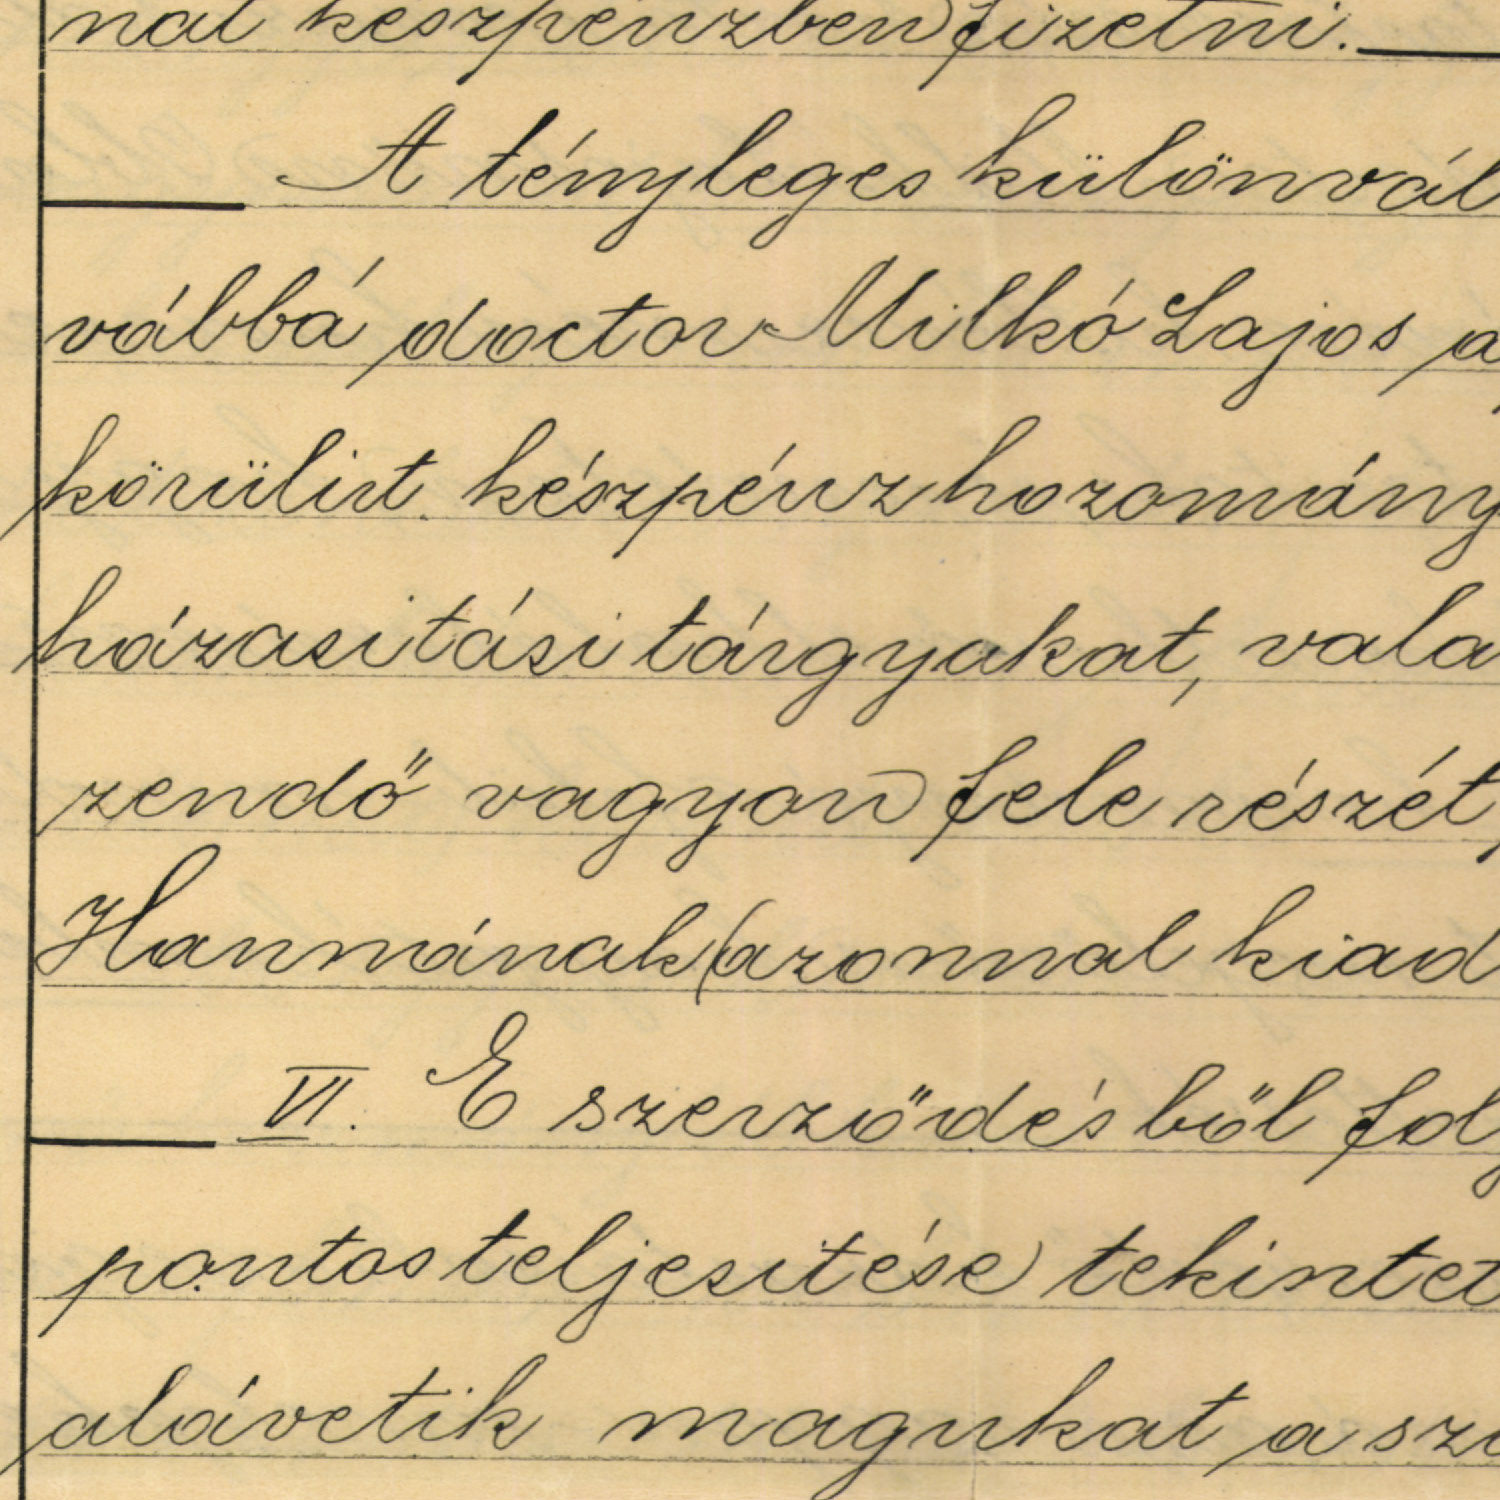 nal készpénzben fizetni.
A tényleges különvál
vábbá doctor Milkó Lajos a
körülirt készpénz hozomány
házasitási tárgyakat, vala
zendő vagyon fele részét,
Hannának azonnal kiad
VI. E szerződésből foly
pontos teljesitése tekintet
alávetik magukat a sz